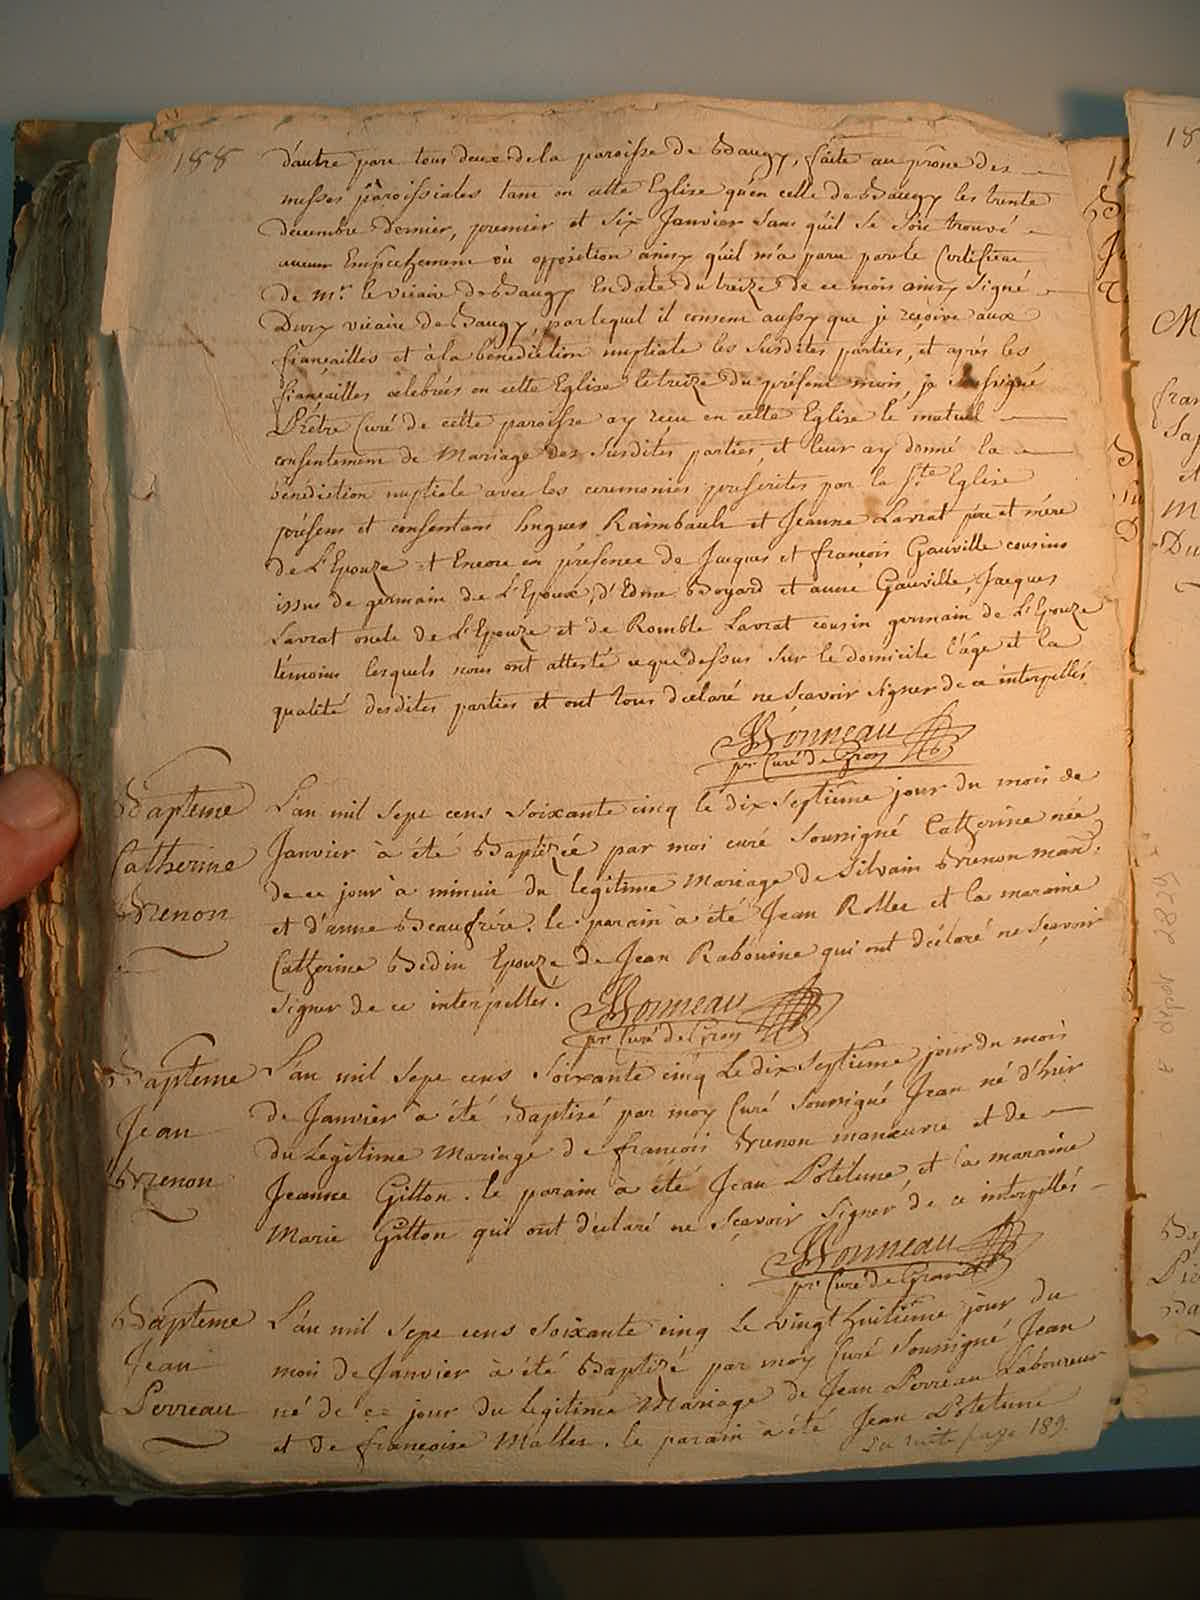 188
d'autre part tous deux de la paroisse de Baugy, faite au prône des
messes paroissiales tant en cette Eglise qu'en celle de Baugy les trente
décembre dernier, premier et six Janvier sans qu'il se soit trouvé
aucun Empêchement ou opposition ainsy qu'il m'a paru par le Certificat
de Mr. le vicaire de Baugy En date du treize de ce mois ainsy signé
Dury vicaire de Baugy, par lequel il consent aussy que je reçoive aux
fiançailles et à la bénédiction nuptiale les susdites parties, et après les
fiançailles célébrées en cette Eglise le treize du présent mois, je soussigné
Prêtre Curé de cette paroisse ay reçu en cette Eglise le mutuel
consentement de Mariage des susdites parties, et leur ay donné la
bénédiction nuptiale avec les ceremonies prescrites par la Ste Eglise
présens et consentans hugues Raimbault et Jeanne Lavrat père et mère
de L'Epouze et Encore en présence de Jacques et françois Gauville cousins
issus de germain de L'Epoux, d'Edme Boyard et Gauville, Jacques
Lavrat oncle de L'Epouze et de Romble Lavrat cousin germain de L'Epouze
témoins lesquels nous ont attesté ce que dessus sur le domicile l'âge et la
qualité desdites parties et ont tous déclaré ne sçavoir signer de ce interpellés
Bonneau
pr Curé de Gron
Bapteme
Catherine
Brenon
L'an mil sept cens soixante cinq le dix septième jour du mois de
Janvier à été Baptizée par moi curé soussigné Catherine née
de ce jour à minuit du legitime mariage de Silvain Brenon man.
et d'anne Beaufrére. le parain à été Jean Rollet et la maraine
Catherine Bedin Epouze de Jean Rabouine qui ont déclaré ne sçavoir
signer de ce interpellés.
Bonneau
pr Curé de Gron
Bapteme
Jean
Brenon
L'an mil sept cens soixante cinq Le dix septième jour du mois
de Janvier à été Baptisé par moy Curé soussigné Jean né d'hier
du Légitime Mariage de françois Brenon manœuvre et de
Jeanne Gitton. le parain à été Jean Potelune, et la maraine
Marie Gitton qui ont déclaré ne sçavoir signer de ce interpellés
Bonneau
pr Curé de Gron
Bapteme
Jean
Perreau
L'an mil sept cens soixante cinq Le vingt huitième jour du
mois de Janvier à été Baptizé par moy Curé soussigné Jean
né de ce jour du legitime Mariage de Jean Perreau Laboureur
et de françoise Mallet. le parain à été Jean Potelune
La suite page 189